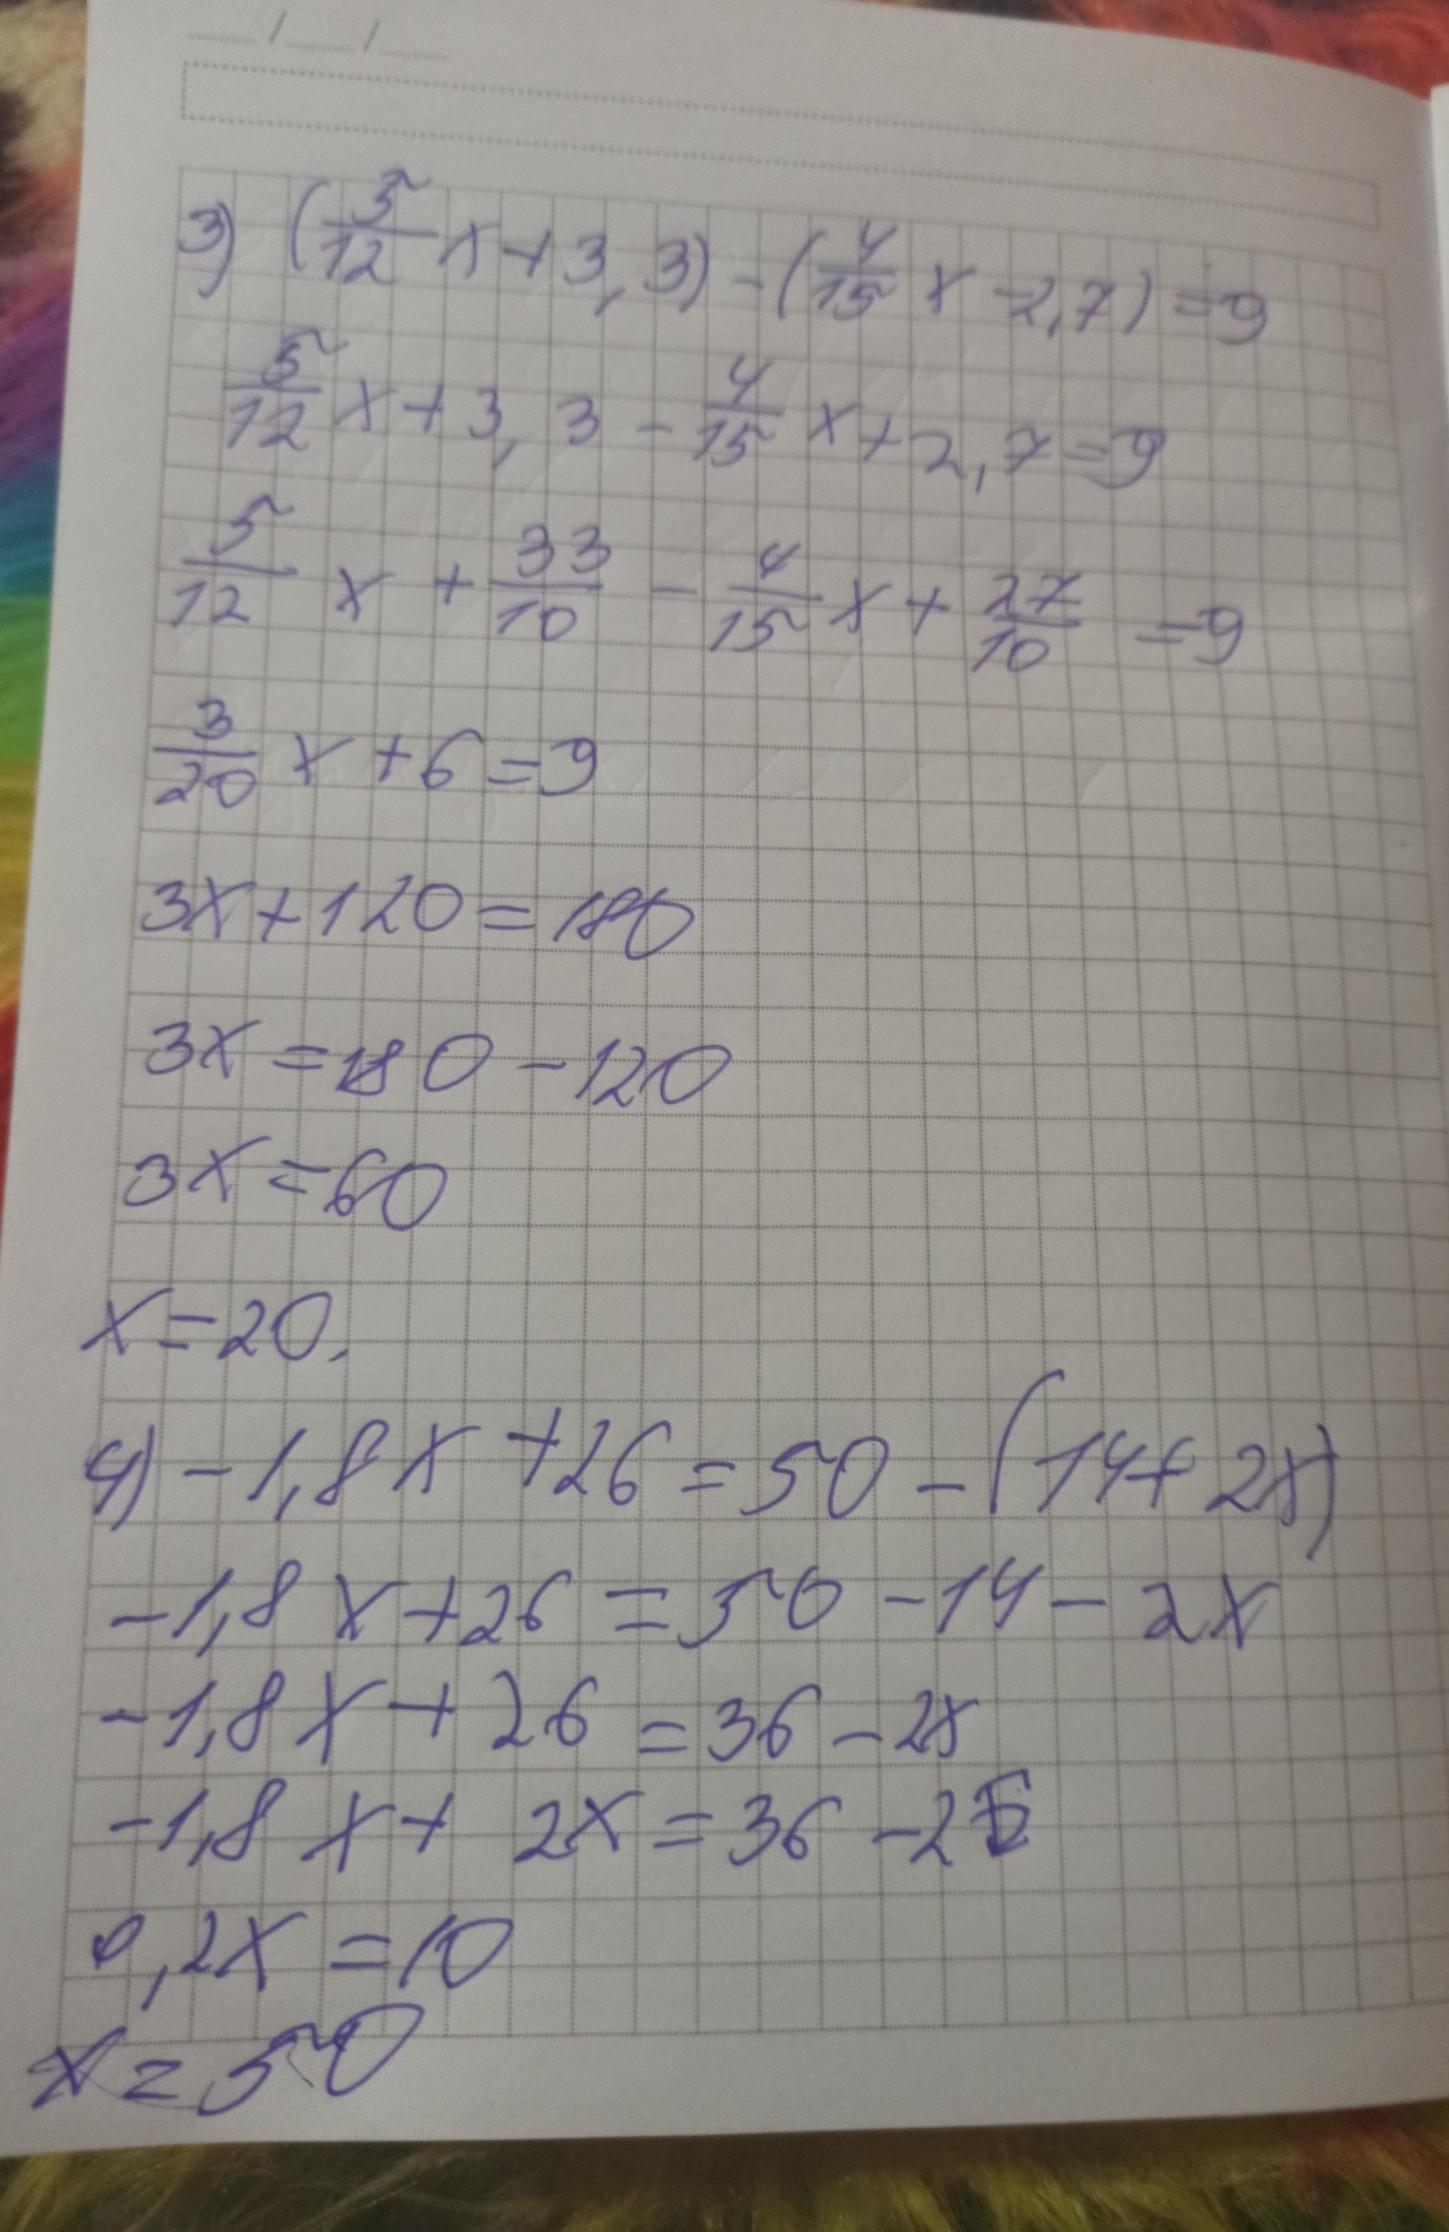 3) (5/12 x + 3,3) - (4/15 x - 2,7) = 9
5/12 x + 3,3 - 4/15 x + 2,7 = 9
5/12 x + 33/10 - 4/15 x + 27/10 = 9
3/20 x + 6 = 9
3x + 120 = 180
3x = 180 - 120
3x = 60
x = 20.
4) -1,8x + 26 = 50 - (14 + 2x)
-1,8x + 26 = 50 - 14 - 2x
-1,8x + 26 = 36 - 2x
-1,8x + 2x = 36 - 26
0,2x = 10
x = 50